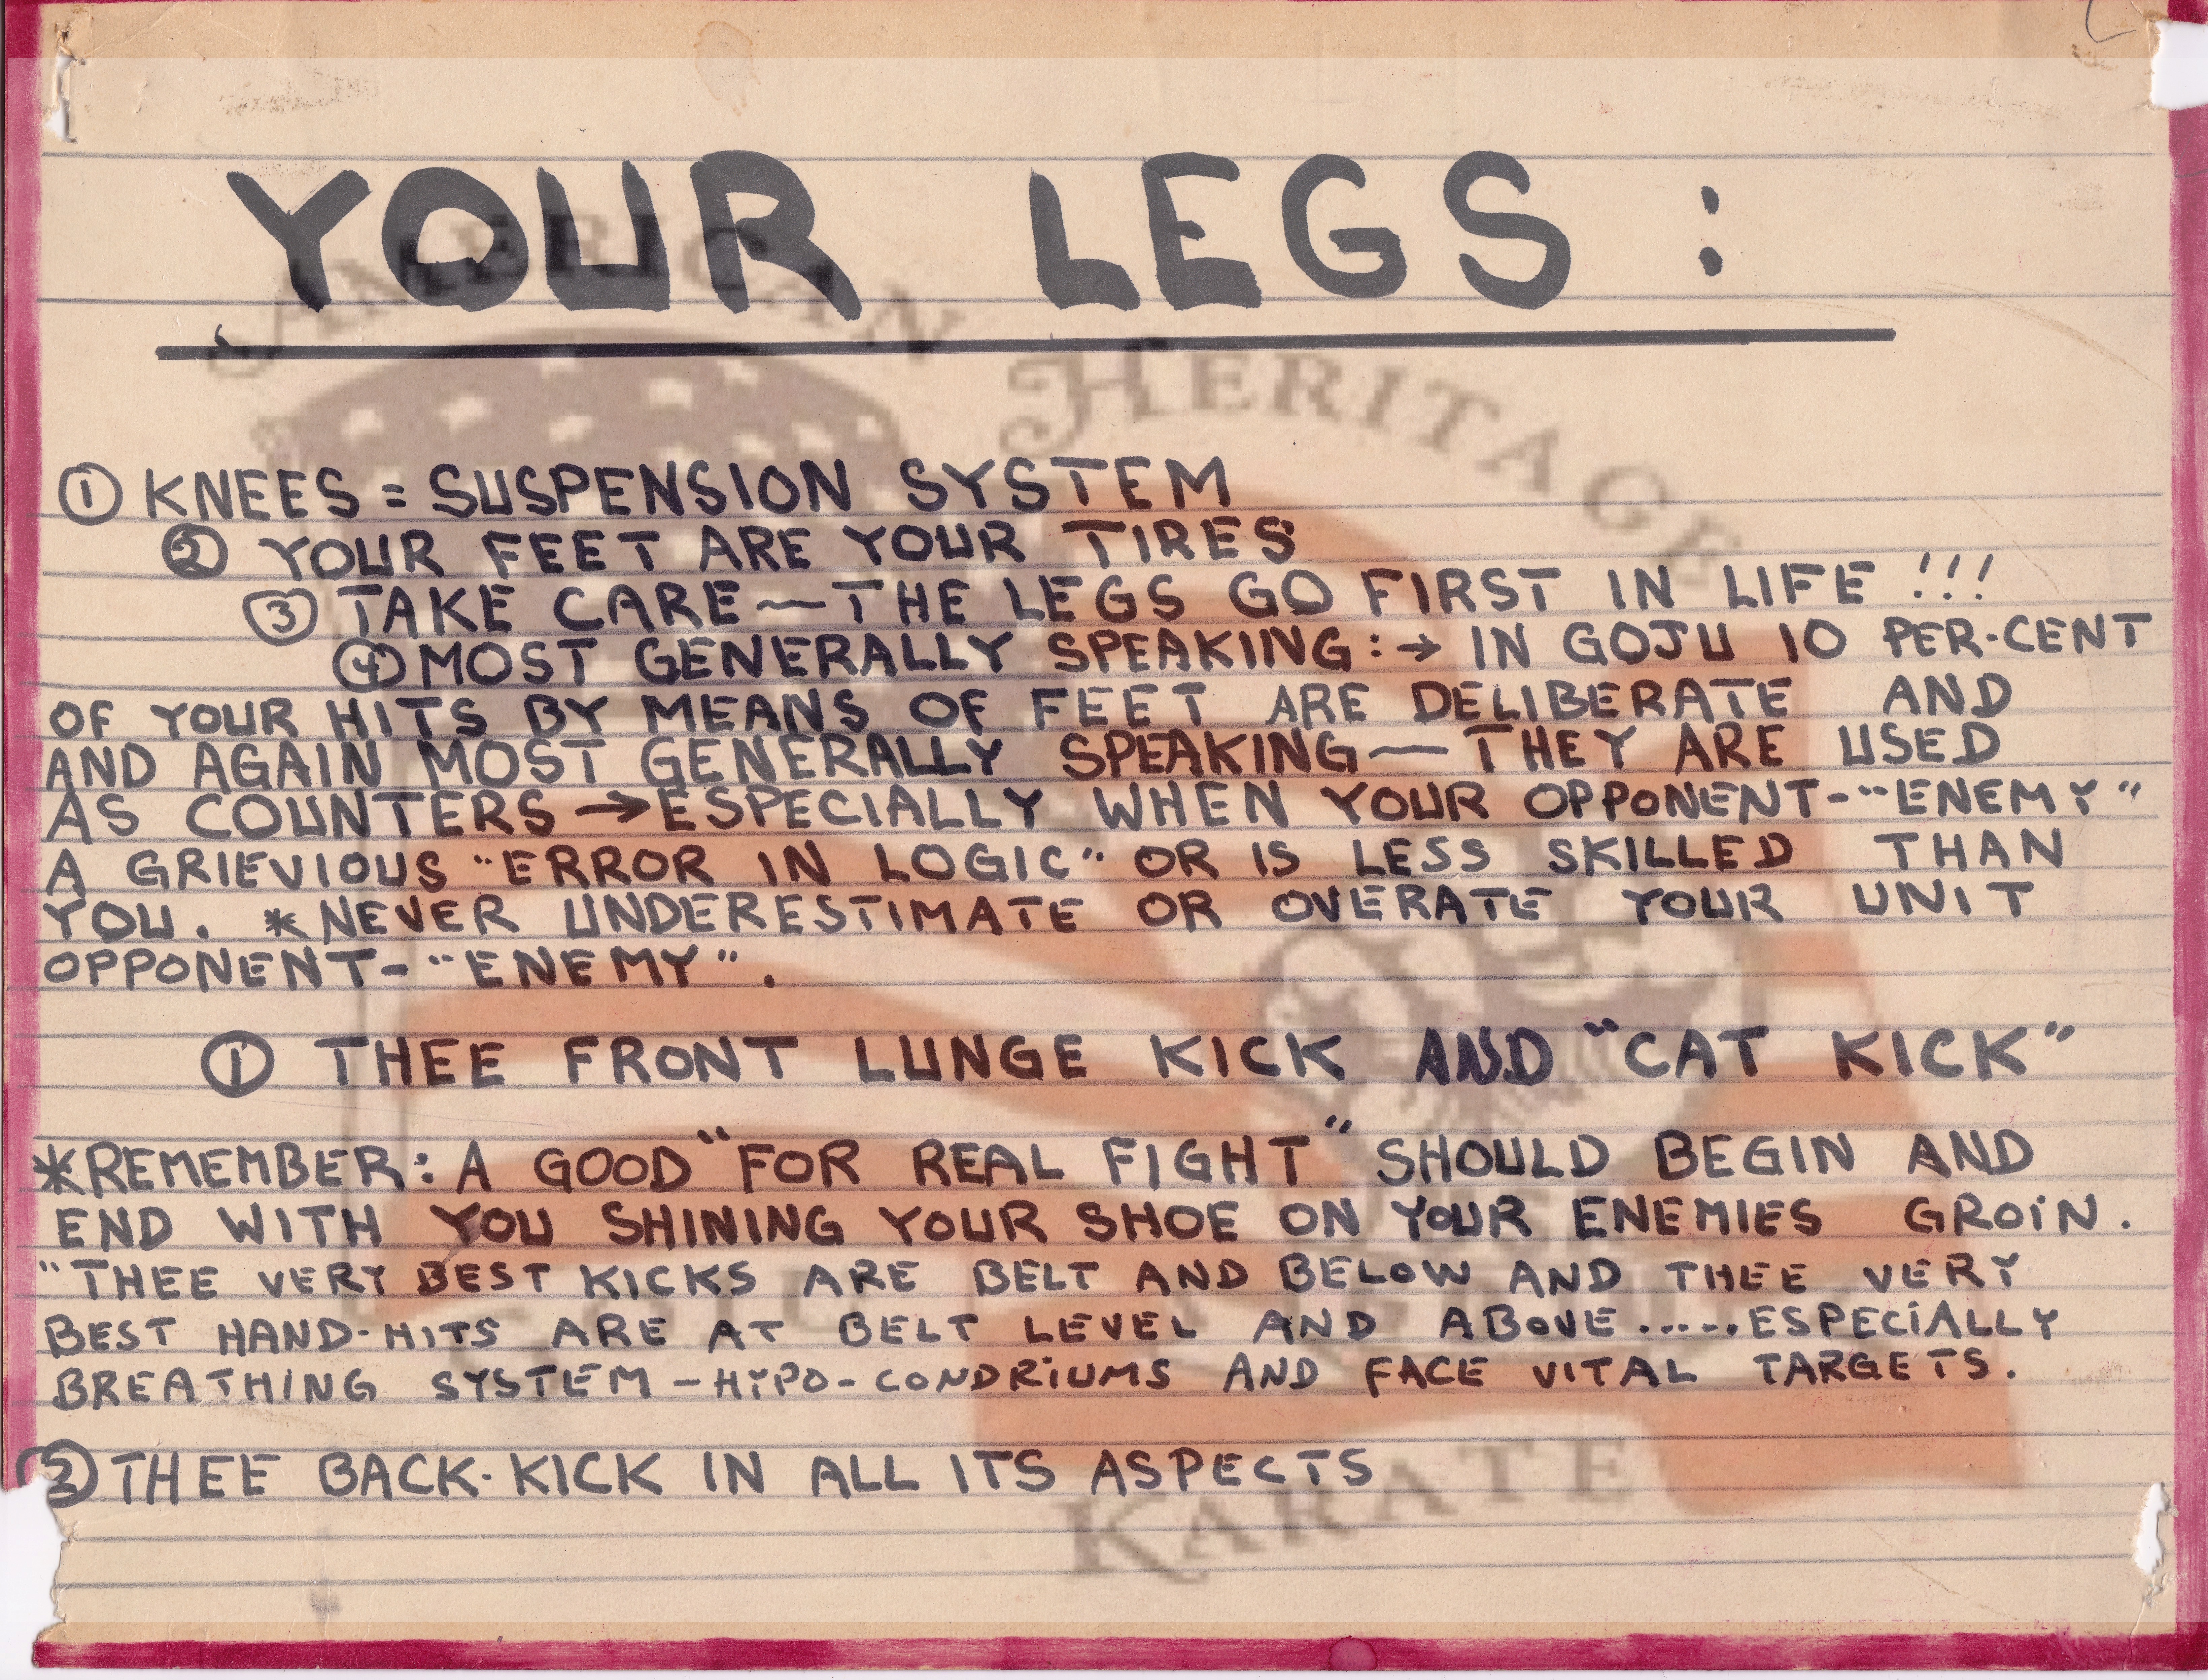 YOUR LEGS :
AMERICAN HERITAGE
① KNEES = SUSPENSION SYSTEM
② YOUR FEET ARE YOUR TIRES
③ TAKE CARE — THE LEGS GO FIRST IN LIFE !!!
④ MOST GENERALLY SPEAKING : → IN GOJU 10 PER-CENT
OF YOUR HITS BY MEANS OF FEET ARE DELIBERATE AND
AND AGAIN MOST GENERALLY SPEAKING — THEY ARE USED
AS COUNTERS → ESPECIALLY WHEN YOUR OPPONENT-"ENEMY"
A GRIEVIOUS "ERROR IN LOGIC" OR IS LESS SKILLED THAN
YOU. *NEVER UNDERESTIMATE OR OVERATE YOUR UNIT
OPPONENT-"ENEMY".
① THEE FRONT LUNGE KICK AND "CAT KICK"
*REMEMBER: A GOOD "FOR REAL FIGHT" SHOULD BEGIN AND
END WITH YOU SHINING YOUR SHOE ON YOUR ENEMIES GROIN.
"THEE VERY BEST KICKS ARE BELT AND BELOW AND THEE VERY
BEST HAND-HITS ARE AT BELT LEVEL AND ABOVE.....ESPECIALLY
BREATHING SYSTEM - HYPO-CONDRIUMS AND FACE VITAL TARGETS.
② THEE BACK-KICK IN ALL ITS ASPECTS
KARATE